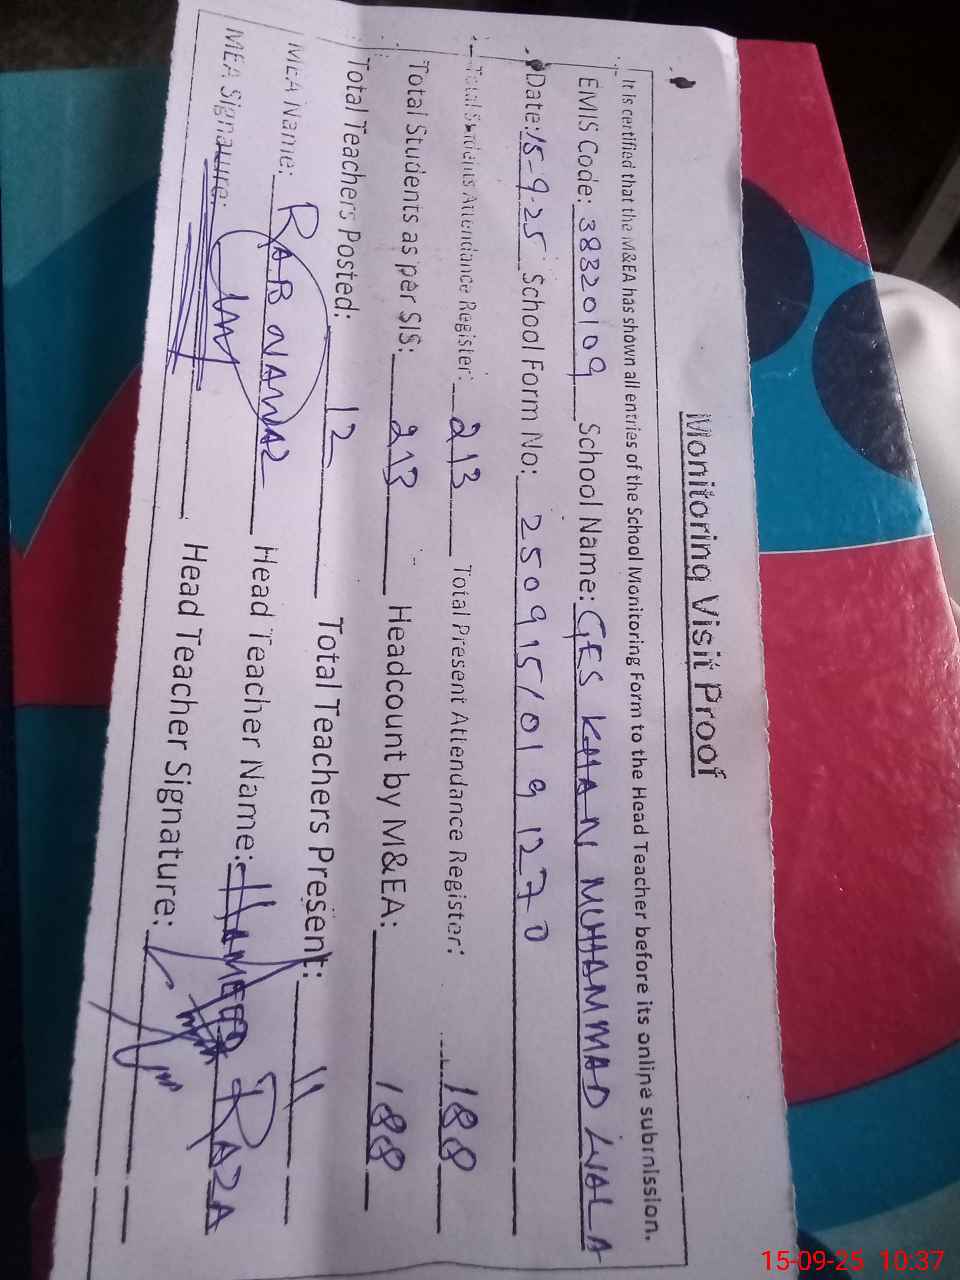 Monitoring Visit Proof
It is certified that the M&EA has shown all entries of the School Monitoring Form to the Head Teacher before its online submission.
EMIS Code: 38320109 School Name: GES KHAN MUHAMMAD WALA
Date: 15-9-25 School Form No: 250915/0191270
Total Students Attendance Register: 213 Total Present Attendance Register: 188
Total Students as per SIS: 213 Headcount by M&EA: 188
Total Teachers Posted: 12 Total Teachers Present: 11
MEA Name: RAB NAWAZ Head Teacher Name: HAMEED RAZA
MEA Signature: Head Teacher Signature:
15-09-25 10:37